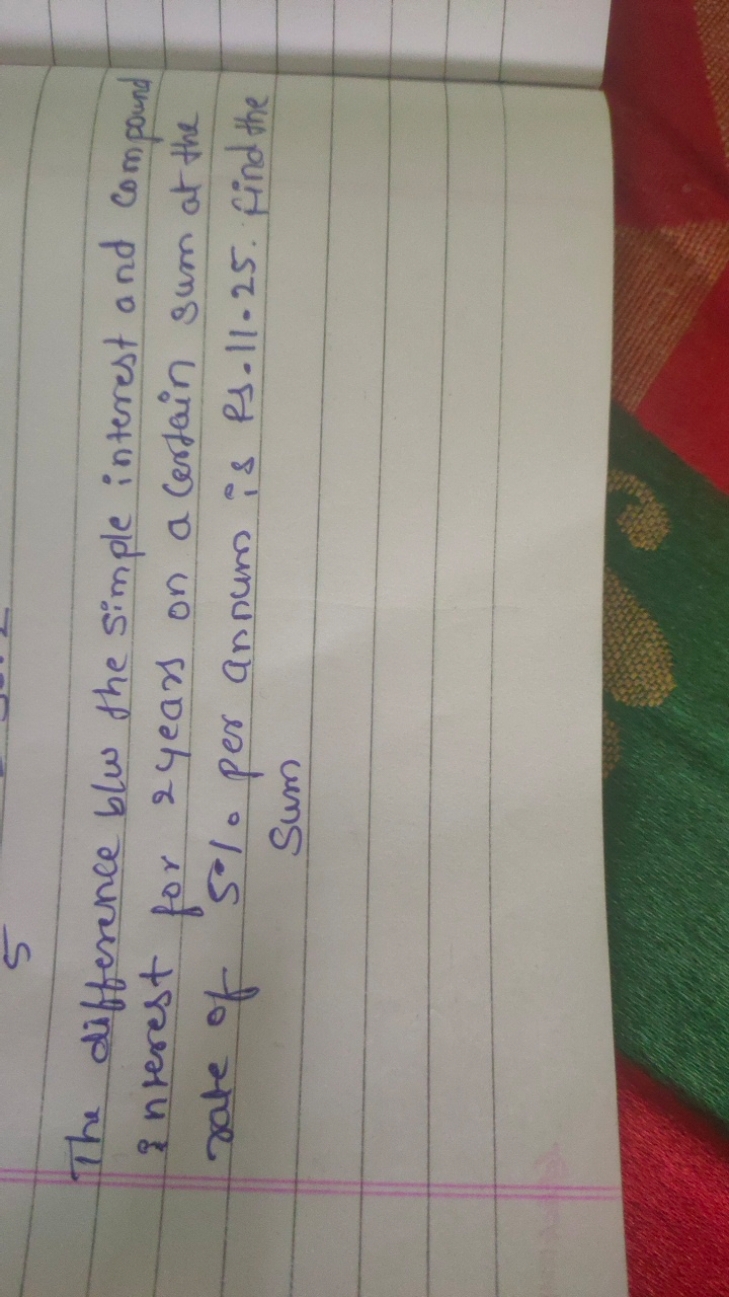 5
The difference b/w the simple interest and compound
interest for 2 years on a certain sum at the
rate of 5% per annum is Rs. 11.25. find the
Sum